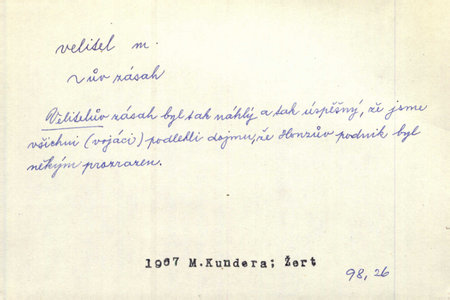 velitel m.
~ův zásah
Velitelův zásah byl tak náhlý a tak úspěšný, že jsme
všichni (vojáci) podlehli dojmu, že Honzův podnik byl
někým prozrazen.
1967 M.Kundera; Žert
98, 26